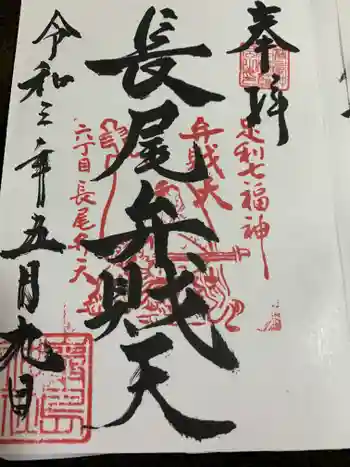 奉拝
足利七福神
弁賊天
長尾弁賊天
六丁目長尾弁天
令和三年五月九日